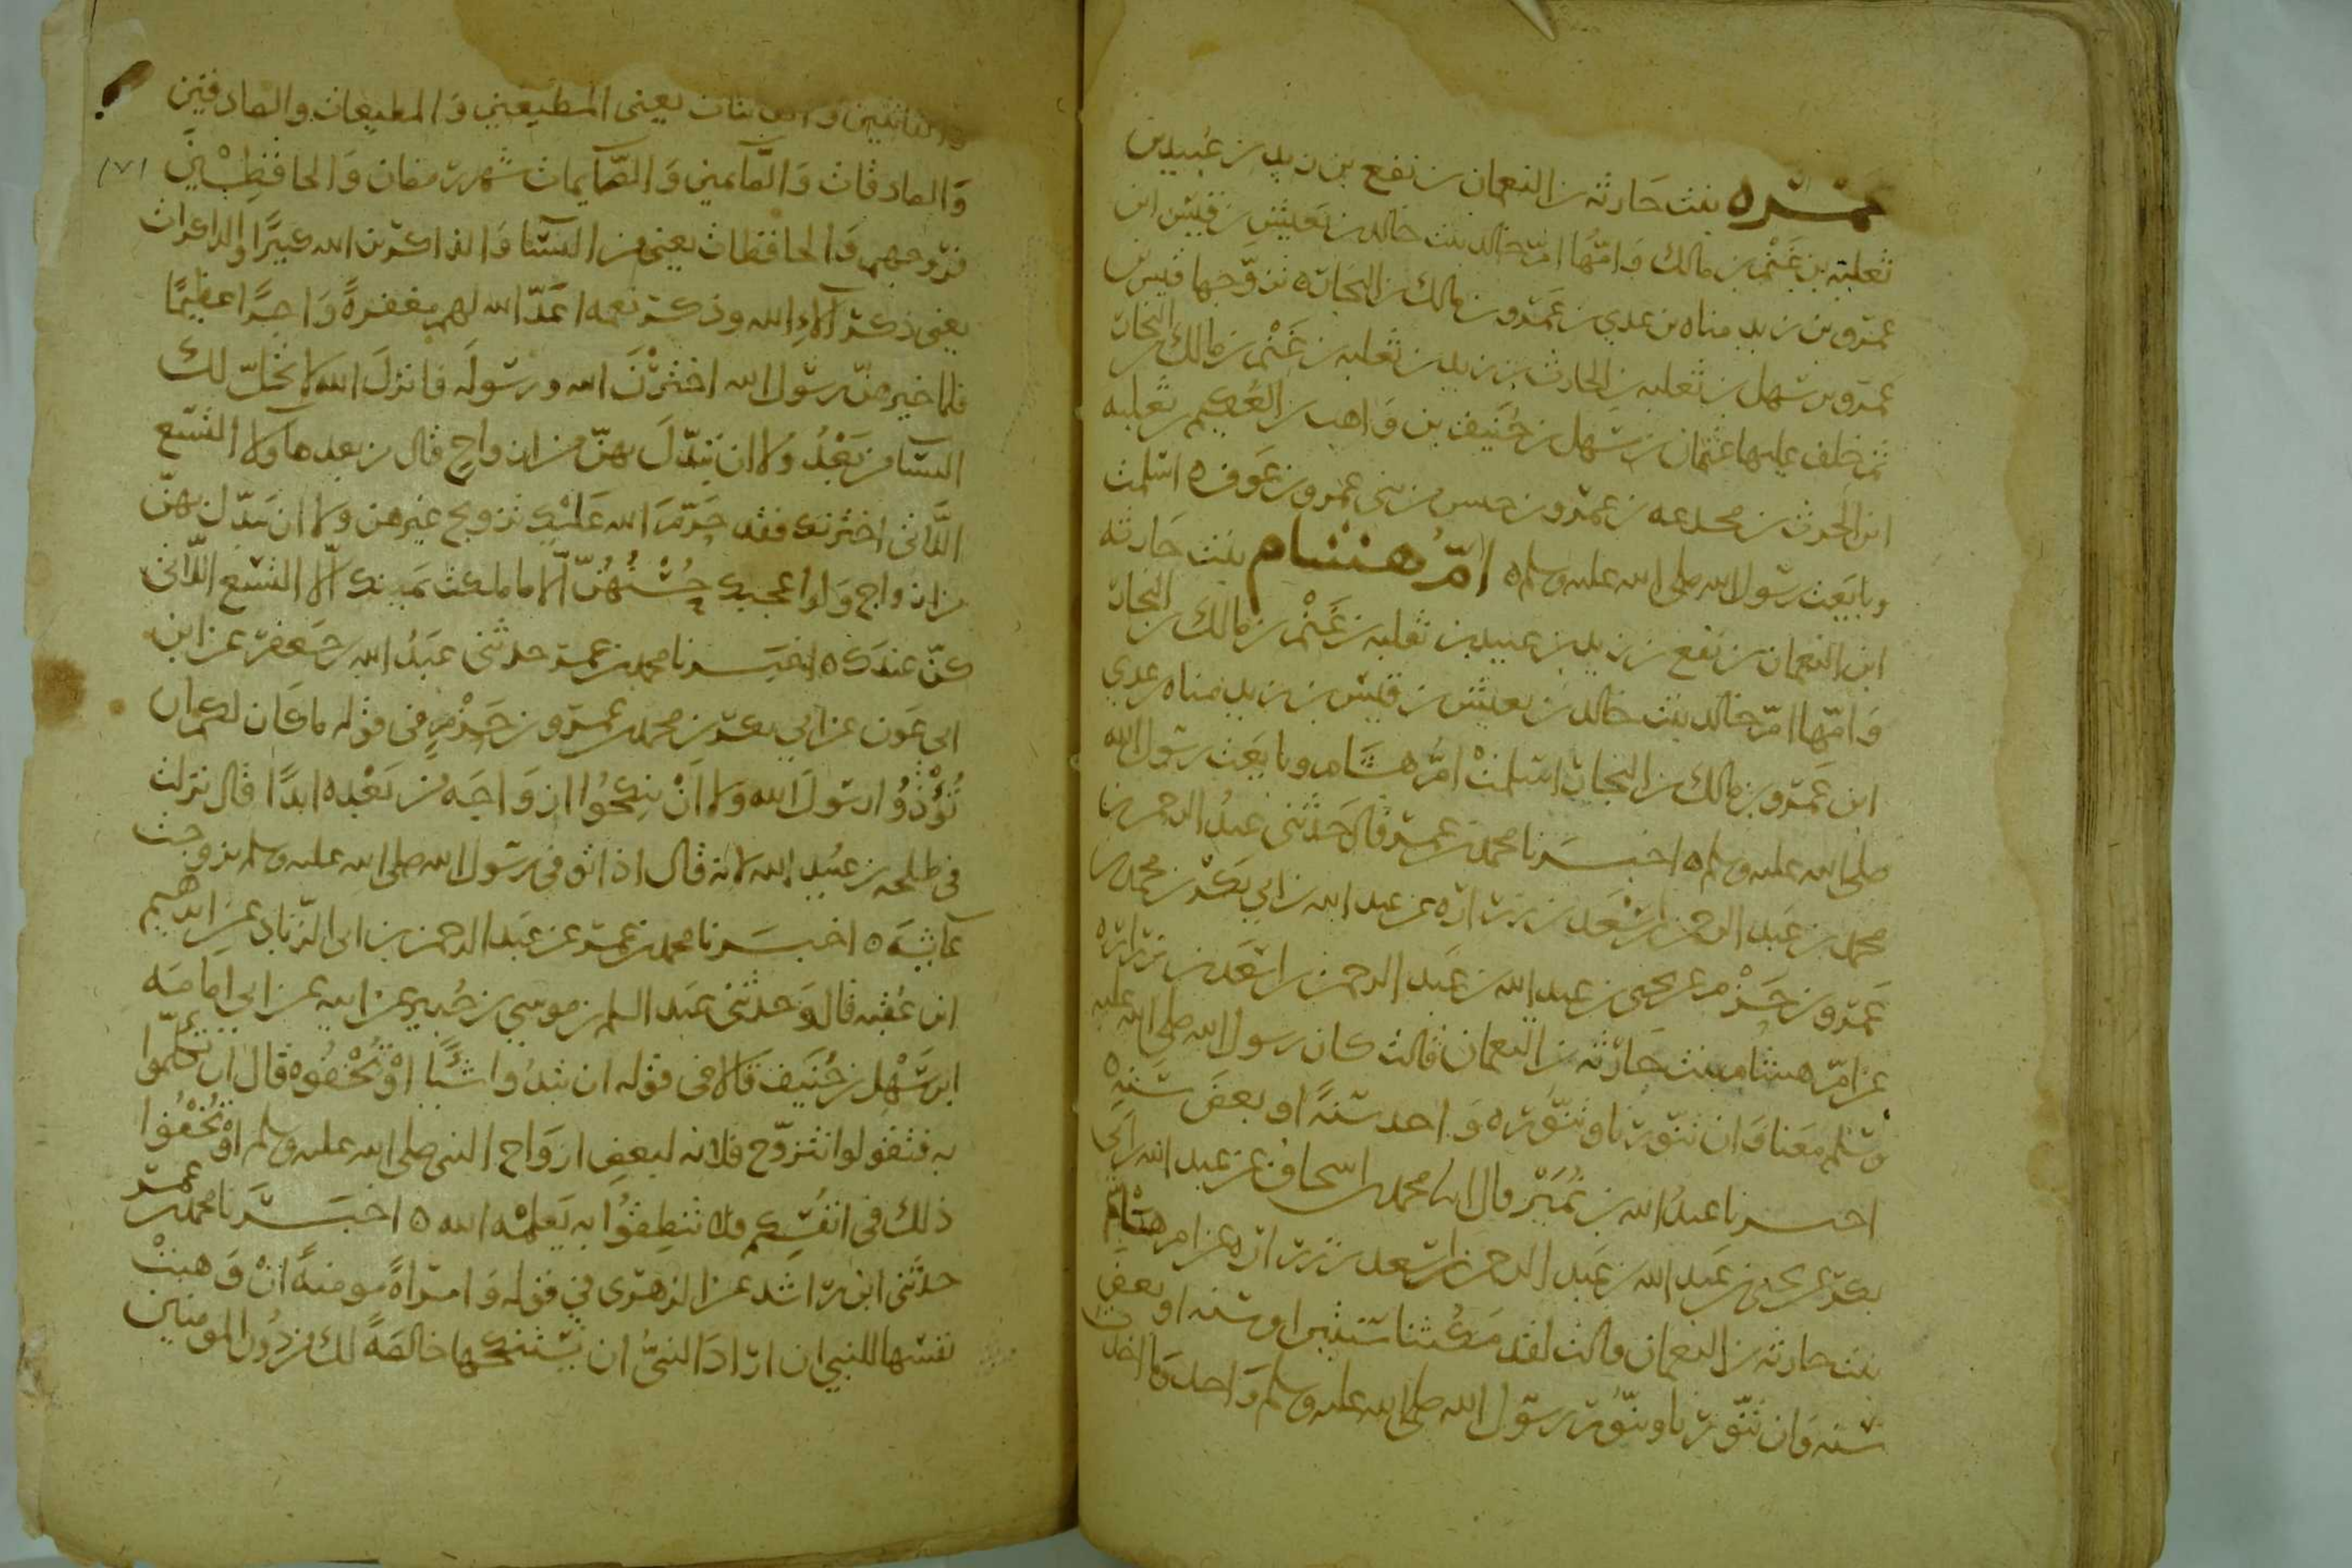 عمرة بنت حارثة بن النعمان بن نفع بن زيد بن عبيد بن
ثعلبة بن غنم بن مالك وامّها امّ خالد بنت خالد بن يعيش بن قيس ابن
عمرو بن زيد مناه بن عدي بن عمرو بن مالك بن النجار ه تزوّجها قيس بن
عمرو بن سهل بن ثعلبه بن الحارث بن زيد بن ثعلبه بن غنم بن مالك بن النجار
ثم خلف عليها عثمان بن سهل بن حُنَيف بن واهب بن العُكيم بن ثعلبه
ابن الحرث بن محدعه بن عمرو بن حنس من بنى عمرو بن عَوف ه اسلمت
وبايَعت رسول الله صلى الله عليه وسلم ه امّ هشام بنت حارثه
ابن النعمان بن نفع بن زيد بن عبيد بن ثعلبه بن غَنْم بن مالك بن النجار
وَامّها امّ خالد بنت خالد بن يعيش بن قيس بن زيد مناه بن عدي
ابن عَمرو بن مالك بن النجار اسلمتْ امّ هشام وبايَعت رسول الله
صلى الله عليه وسلم ه اخبرنا محمد بن عمر قال حَدّثنى عبدُ الرحمن بن
محمد بن عَبد الرحمن بن اسْعَد بن زرارة عن عبد الله بن ابي بَكْر بن محمد بن
عَمرو بن حَزْم عن يحيى بن عبد الله بن عَبد الرحمن بن اسعَد بن زرَارَه
عن امّ هشام بنت حَارثه بن النعمان قالت كان رسول الله صلى الله عليه
وسَلم مَعَنا وَان تنّورنا وتنّوره وَاحد سنةً او بعضَ سَنهْ
اخبرنا عبدُ الله بن نُمَيْر قال انا محمد بن اسحاق عن عبد الله بن ابي
بكر عن يحيى بن عَبد الله بن عَبد الرحمن بن اسعد بن زرارة عن ام هشام
بنت حارثه بن النعمان قالت لقد مَكثنا سنتين او سنه او بعض
سنه وَان تنّورنا وتنّور رسول الله صلى الله عليه وسلم وَاحد مَا اخذت
والقانتين والقانتات يعنى المطيعين وَالمطيعات والصادقين
وَالصادقات وَالصّآئمين وَالصّآيمات شهر رمضان وَالحافظِيْنَ
فروجهم وَالحافظات يعنى من النسآ وَالذاكرين الله كثيرًا والذاكرات
يعنى ذكر آلاءِ الله وذكر نعمه اعَدّ الله لهم مغفرةً وَاجرًا عظيمًا
فلما خيرهنّ رسُول الله اخترْنَ الله ورسُولَه فانزلَ الله لا تحلّ لك
النسآ من بَعْدُ وَلا ان تبَدّلَ بهنّ من ازواجٍ قال من بعد هاولا التسع
اللّاتى اخترنك فقد حَرّمَ الله عَليْك تزويج غيرهن ولا ان تبدّل بهنّ
من ازواجٍ وَلوْ اعجبك حُسْنُهُنّ الّا ما ملكت يَمينك الّا التسع اللّاتى
كنّ عندَك ه اخبَرنا محمد بن عمر حدثنى عبدُ الله بن جَعفر عن ابن
ابى عَون عن ابي بكر بن محمد بن عمرو بن حَزْمٍ فى قوْله ما كان لكم ان
تُؤْذوُا رسُولَ الله وَلا اَنْ تنكِحُوا ازوَاجَه من بَعْدِه ابدًا قال نزلت
فى طلحه بن عبُيد الله لانه قال اذا توفى رسُول الله صلى الله عليه وسلم تزوجت
عآيشَه ه اخبَرنا محمد بن عمر عن عَبد الرحمن بن ابى الزناد عن ابراهيم
ابن عُقبه قال وَحدثنى عبَد الله بن موسي بن جُبير عن ابيه عن ابي امامَه
ابن سَهْل بن حُنَيف قالا فى قوله ان تبدُوا شيًا اوْ تُخفُوه قال ان تكلموا
به فتقولوا نتزوّج فلانه لبعضِ ازوَاج النبى صلى الله عليه وسلم اوْ تُخْفُوا
ذلك فى انفُسِكم فلا تنطِقوُا به يَعلمْه الله ه اخبَرَنا محمد بن عمر
حدّثنى ابن راشد عن الزهرى في قوله وَامراةً مومنهً انْ وَهبتْ
نفسَها للنبي ان ارَادَ النبىّ ان يَستنكحها خالصَةً لك من دُون المومنين
١٧١